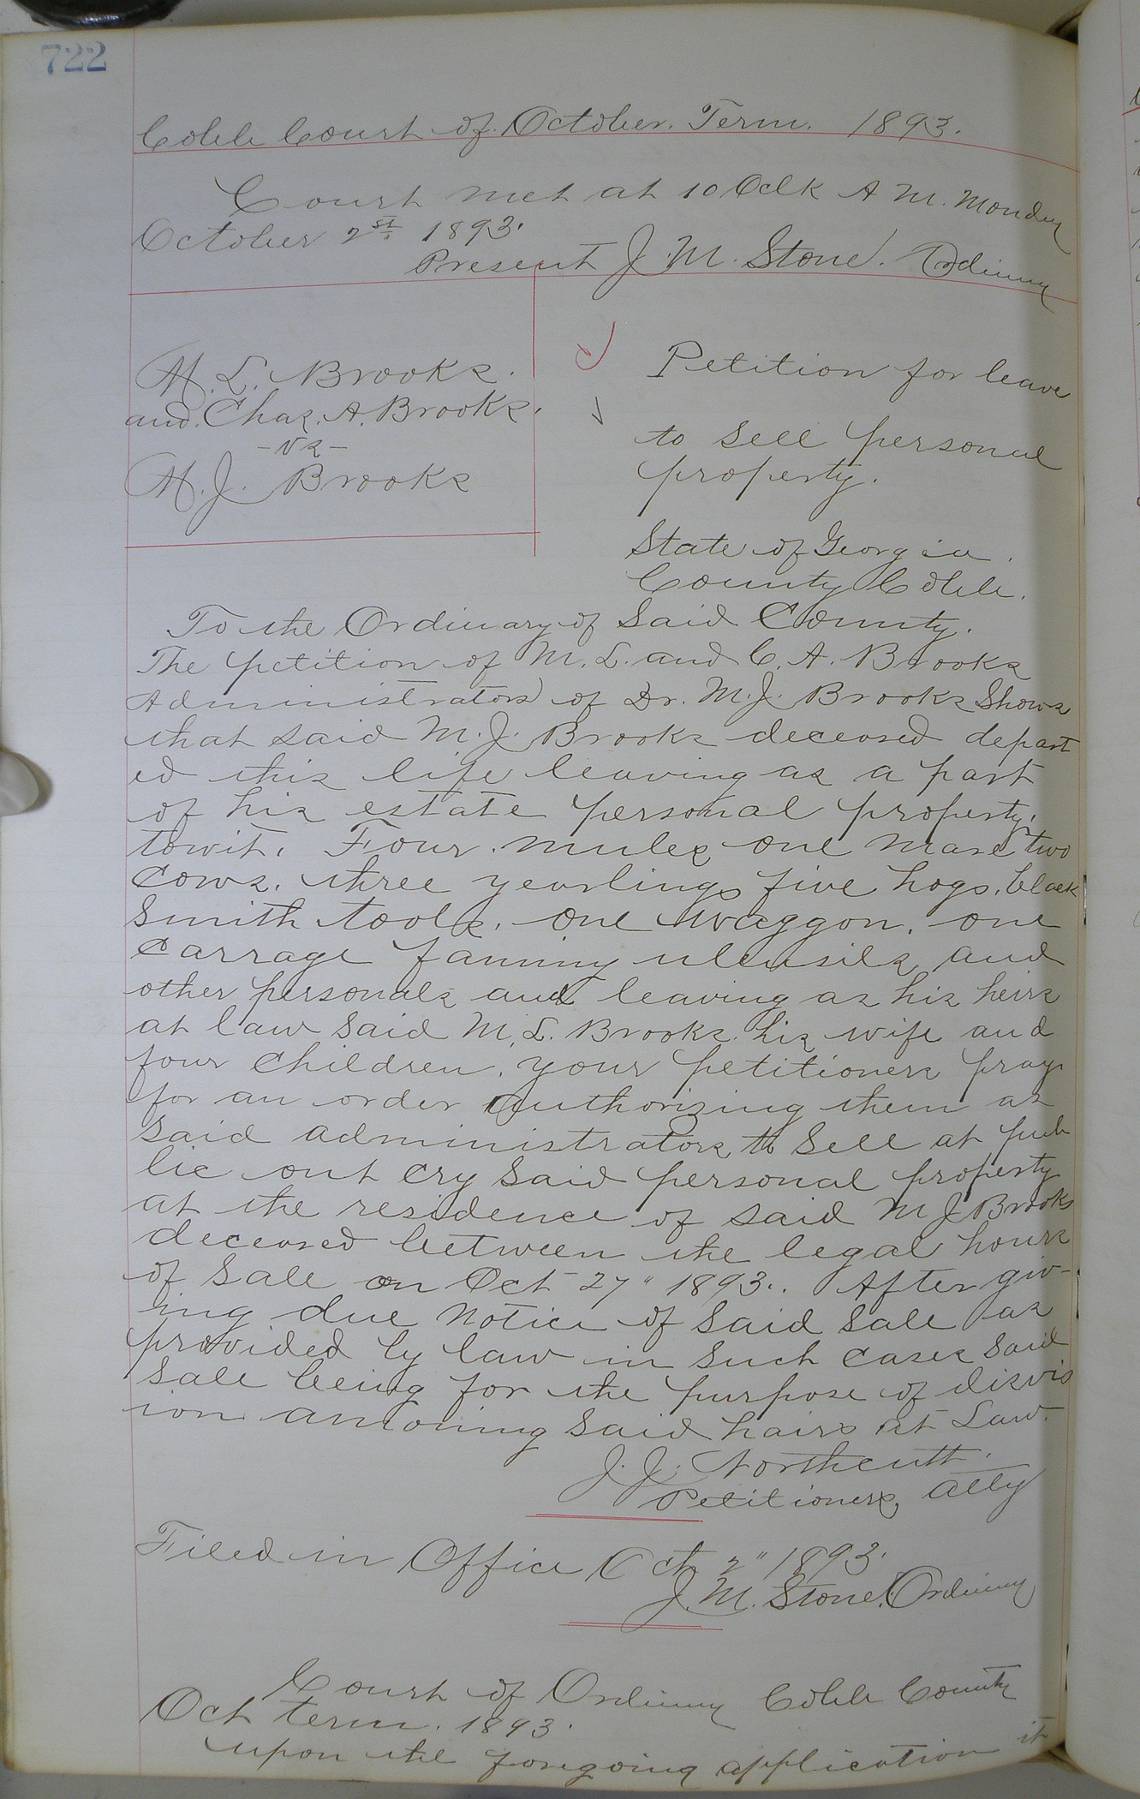 722
Cobb Court of October. Term. 1893.
Court met at 10 Oclk A M. Monday
October 2st 1893.
Present J. M. Stone. Ordinary
M. L. Brooks.
and. Chas. A. Brooks.
- vs -
M. J. Brooks
Petition for leave
to sell personal
property.
State of Georgia.
County Cobb.
To the Ordinary of Said County.
The petition of M. L. and C. A. Brooks
Administrators of Dr. M. J. Brooks Shows
that said M. J. Brooks deceased depart
ed this life leaving as a part
of his estate personal property.
towit. Four. mules one mare two
Cows. three yearlings five hogs. black
Smith tools. one waggon. one
Carrage farming utensils and
other personals and leaving as his heirs
at law said M. L. Brooks his wife and
four children. your petitioners pray
for an order authorizing them as
said administrators to Sell at pub
lic out cry said personal property
at the residence of said M J Brooks
deceased between the legal hours
of Sale on Oct 27" 1893. After giv-
ing due notice of said sale as
provided by law in such cases said
Sale being for the purpose of disvis
ion amoning said hairs at Law.
J. J. Northcutt.
Petitioners, Atty
Filed in Office Oct 2" 1893.
J. M. Stone. Ordinary
Court of Ordinary Cobb County
Oct term. 1893.
upon the foregoing application it